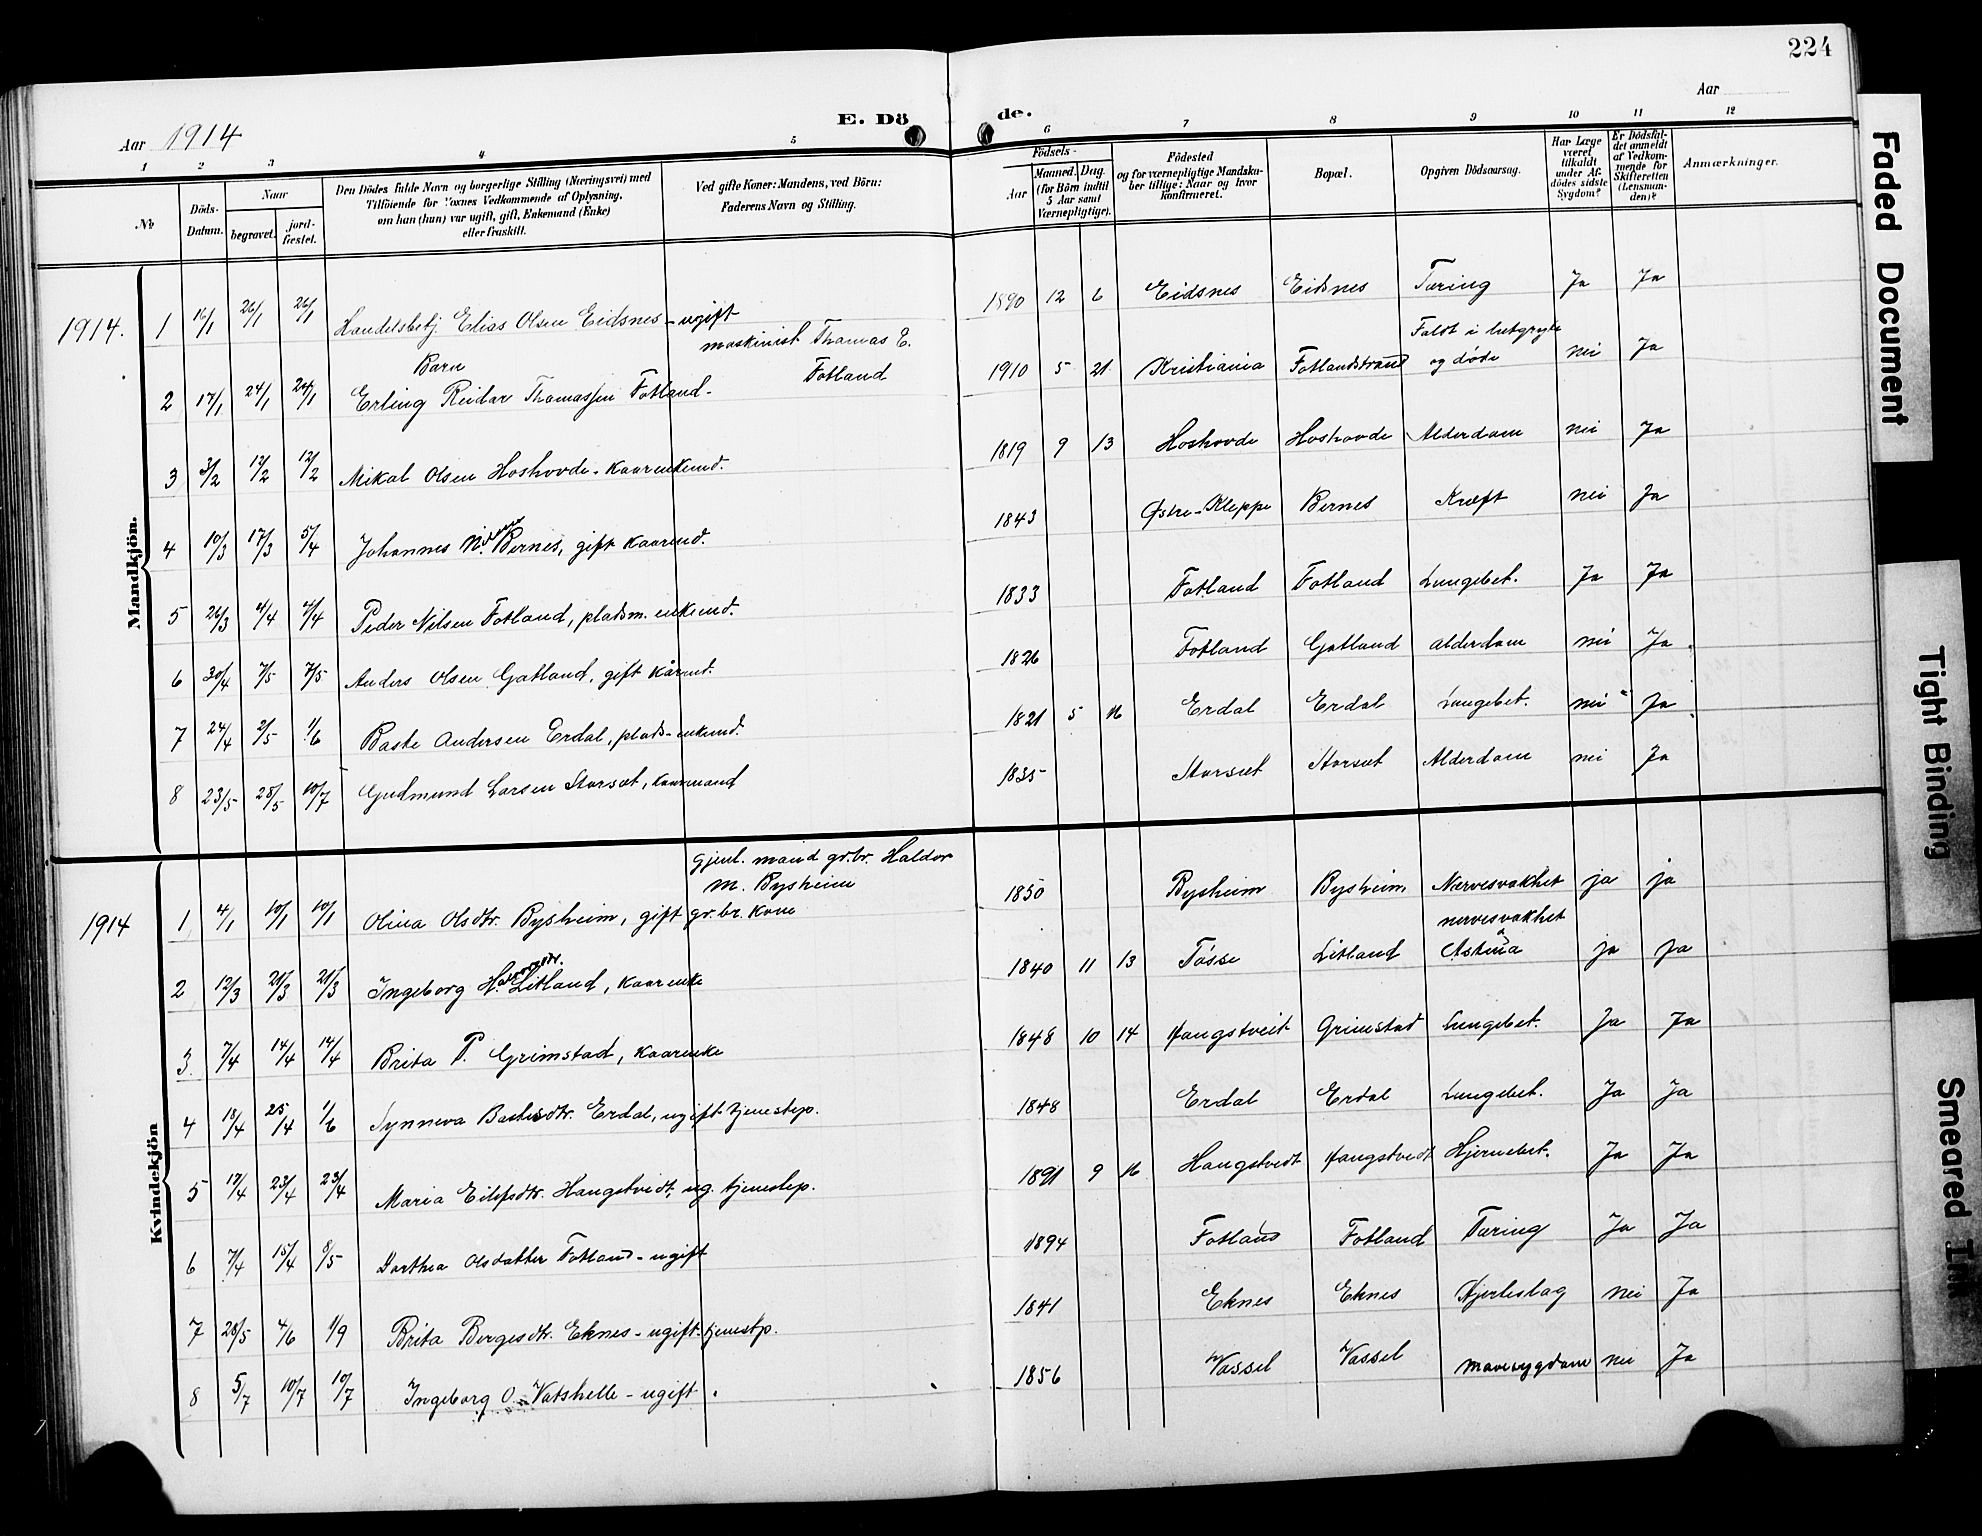 224
Aar 1914
E. Dö
de.
Aar
1 2 3 4 5 6 7 8 9 10 11 12
№
Döds-Datum.
Naar
begravet.
jord-fæstet.
Den Dödes fulde Navn og borgerlige Stilling (Næringsvei) med
Tilföiende for Voxnes Vedkommende af Oplysning,
om han (hun) var ugift, gift, Enkemand (Enke)
eller fraskilt.
Ved gifte Koner: Mandens, ved Börn:
Faderens Navn og Stilling.
Födsels-
Aar
Maaned. Dag.
(for Börn indtil
5 Aar samt
Værnepligtige).
Födested
og for værnepligtige Mandska-
ber tillige: Naar og hvor
konfirmeret.
Bopæl.
Opgiven Dödsaarsag.
Har Læge
været
tilkaldt
under Af-
dödes sidste
Sygdom?
Er Dödsfal-
det anmeldt
af Vedkom-
mende for
Skifteretten
(Lensman-
den)?
Anmærkninger.
Mandkjön.
1914. 1 16/1 26/1 26/1 Handelsbetj. Elias Olsen Eidsnes - ugift 1890 12 6 Eidsnes Eidsnes Tæring Ja Ja
Barn maskinist Thomas E. Fotland
2 17/1 24/1 24/1 Erling Reidar Thomassen Fotland - 1910 5 21 Kristiania Fotlandstrand Faldt i og døde nei Ja
3 3/2 12/2 12/2 Mikal Olsen Hoshovde - kaarenkemd. 1819 9 13 Hoshovde Hoshovde Alderdom nei Ja
4 10/3 17/3 5/4 Johannes Bernes, gift kaarmd. 1843 Østre-Kleppe Bernes Kræft nei Ja
5 26/3 4/4 Peder Nilsen Fotland, pladsm. enkemd. 1833 Fotland Fotland Lungebet. Ja Ja
6 30/4 7/5 7/5 Anders Olsen Gatland, gift kårmd. 1826 Fotland Gatland Alderdom nei Ja
7 24/4 2/5 1/6 Baste Andersen Erdal, plads-enkemd. 1821 5 16 Erdal Erdal Lungebet. nei Ja
8 23/5 28/5 10/7 Gudmund Larsen Storsæt, kaarmand 1835 Storsæt Storsæt Alderdom nei Ja
Kvindekjön
gjenl. mand gr.br. Haldor
M. Bysheim
1914 1 4/1 10/1 10/1 Olina Olsdtr. Bysheim, gift gr.br. kone 1850 Bysheim Bysheim Nervesvakhet ja ja
2 12/3 21/3 21/3 Ingeborg Litland, kaarenke 1840 11 13 Tøsse Litland nervesvakhet Astma ja ja
3 7/4 14/4 14/4 Brita P. Grimstad, kaarenke 1848 10 14 Hangstveit Grimstad Lungebet. Ja Ja
4 18/4 25/4 1/6 Synneva Bastesdtr. Erdal, ugift tjenestep. 1848 Erdal Erdal Lungebet. Ja Ja
5 17/4 23/4 23/4 Maria Eilifsdtr. Hangstvedt, ug. tjenestep. 1891 9 16 Hangstvedt Hangstvedt Hjernebet. Ja Ja
6 7/4 15/4 8/5 Dorthea Olsdatter Fotland - ugift 1894 Fotland Fotland Tæring Ja Ja
7 28/5 4/6 1/9 Brita Børgesdtr. Eknes - ugift tjenestp. 1841 Eknes Eknes Hjerteslag nei Ja
8 5/7 10/7 10/7 Ingeborg O. Vatshelle - ugift 1856 Vassel Vassel Mavesygdom nei Ja
Faded Document
Tight Binding
Smeared Ink